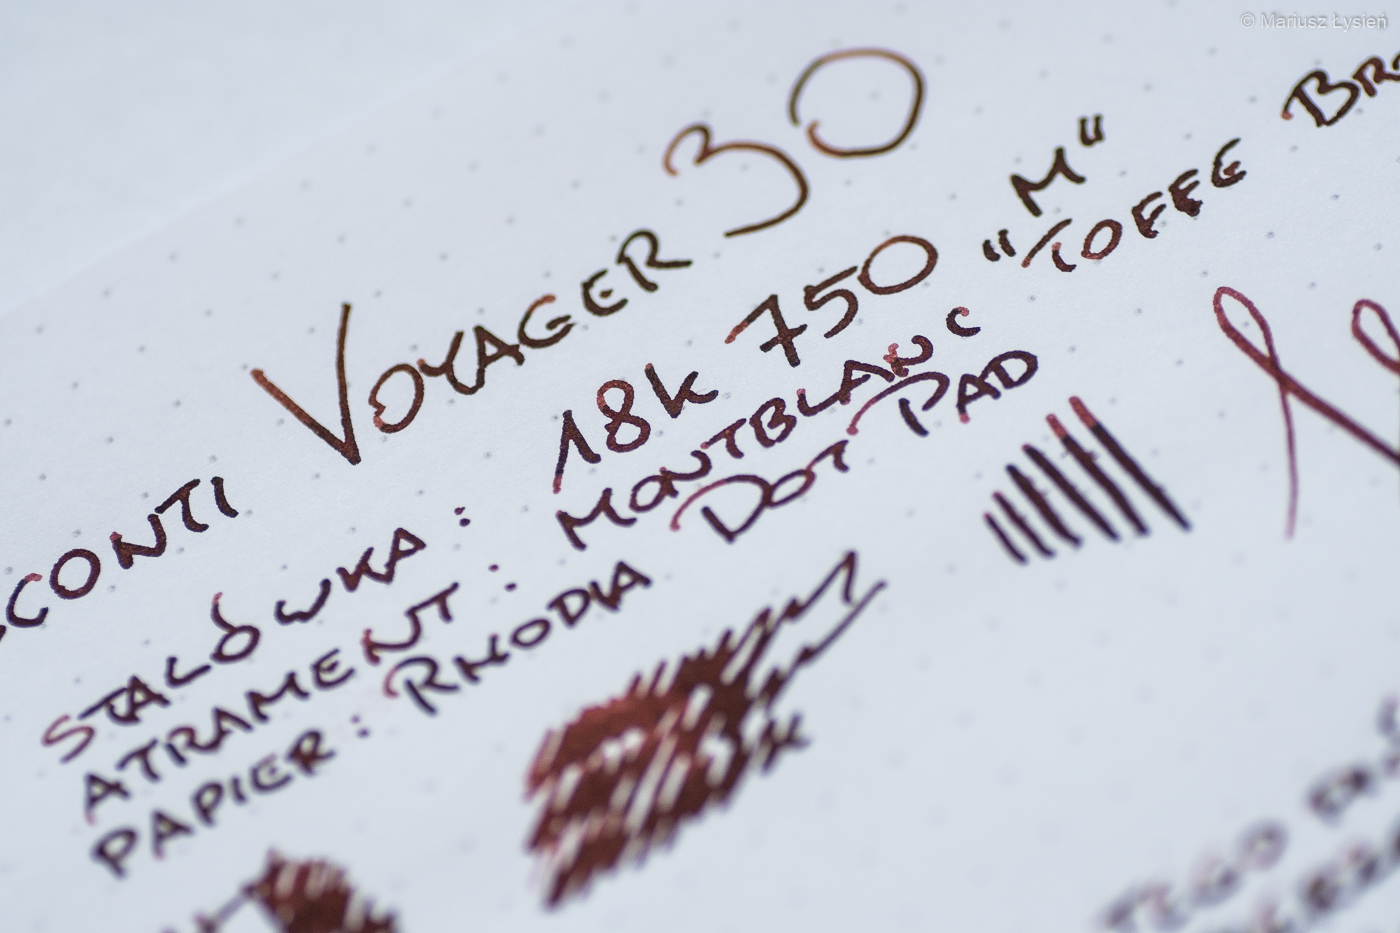 © Mariusz Łysień
SCONTI VOYAGER 30
STALÓWKA: 18K 750 "M"
ATRAMENT: MONTBLANC "TOFFE BR
PAPIER: RHODIA DOT PAD